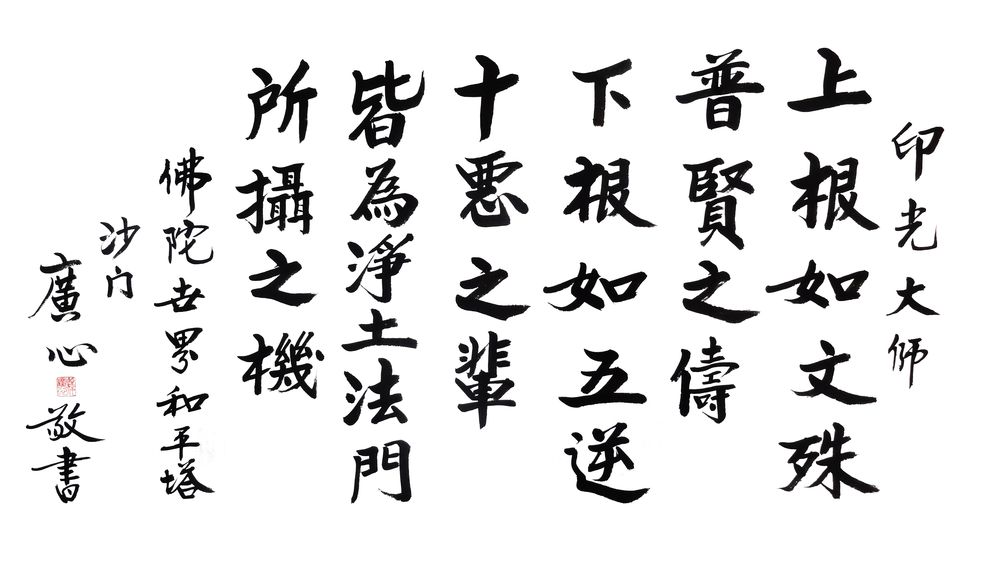 印光大师
上根如文殊
普賢之儔
下根如五逆
十惡之輩
皆為淨土法門
所攝之機
佛陀世界和平塔
沙门
廣心
敬書